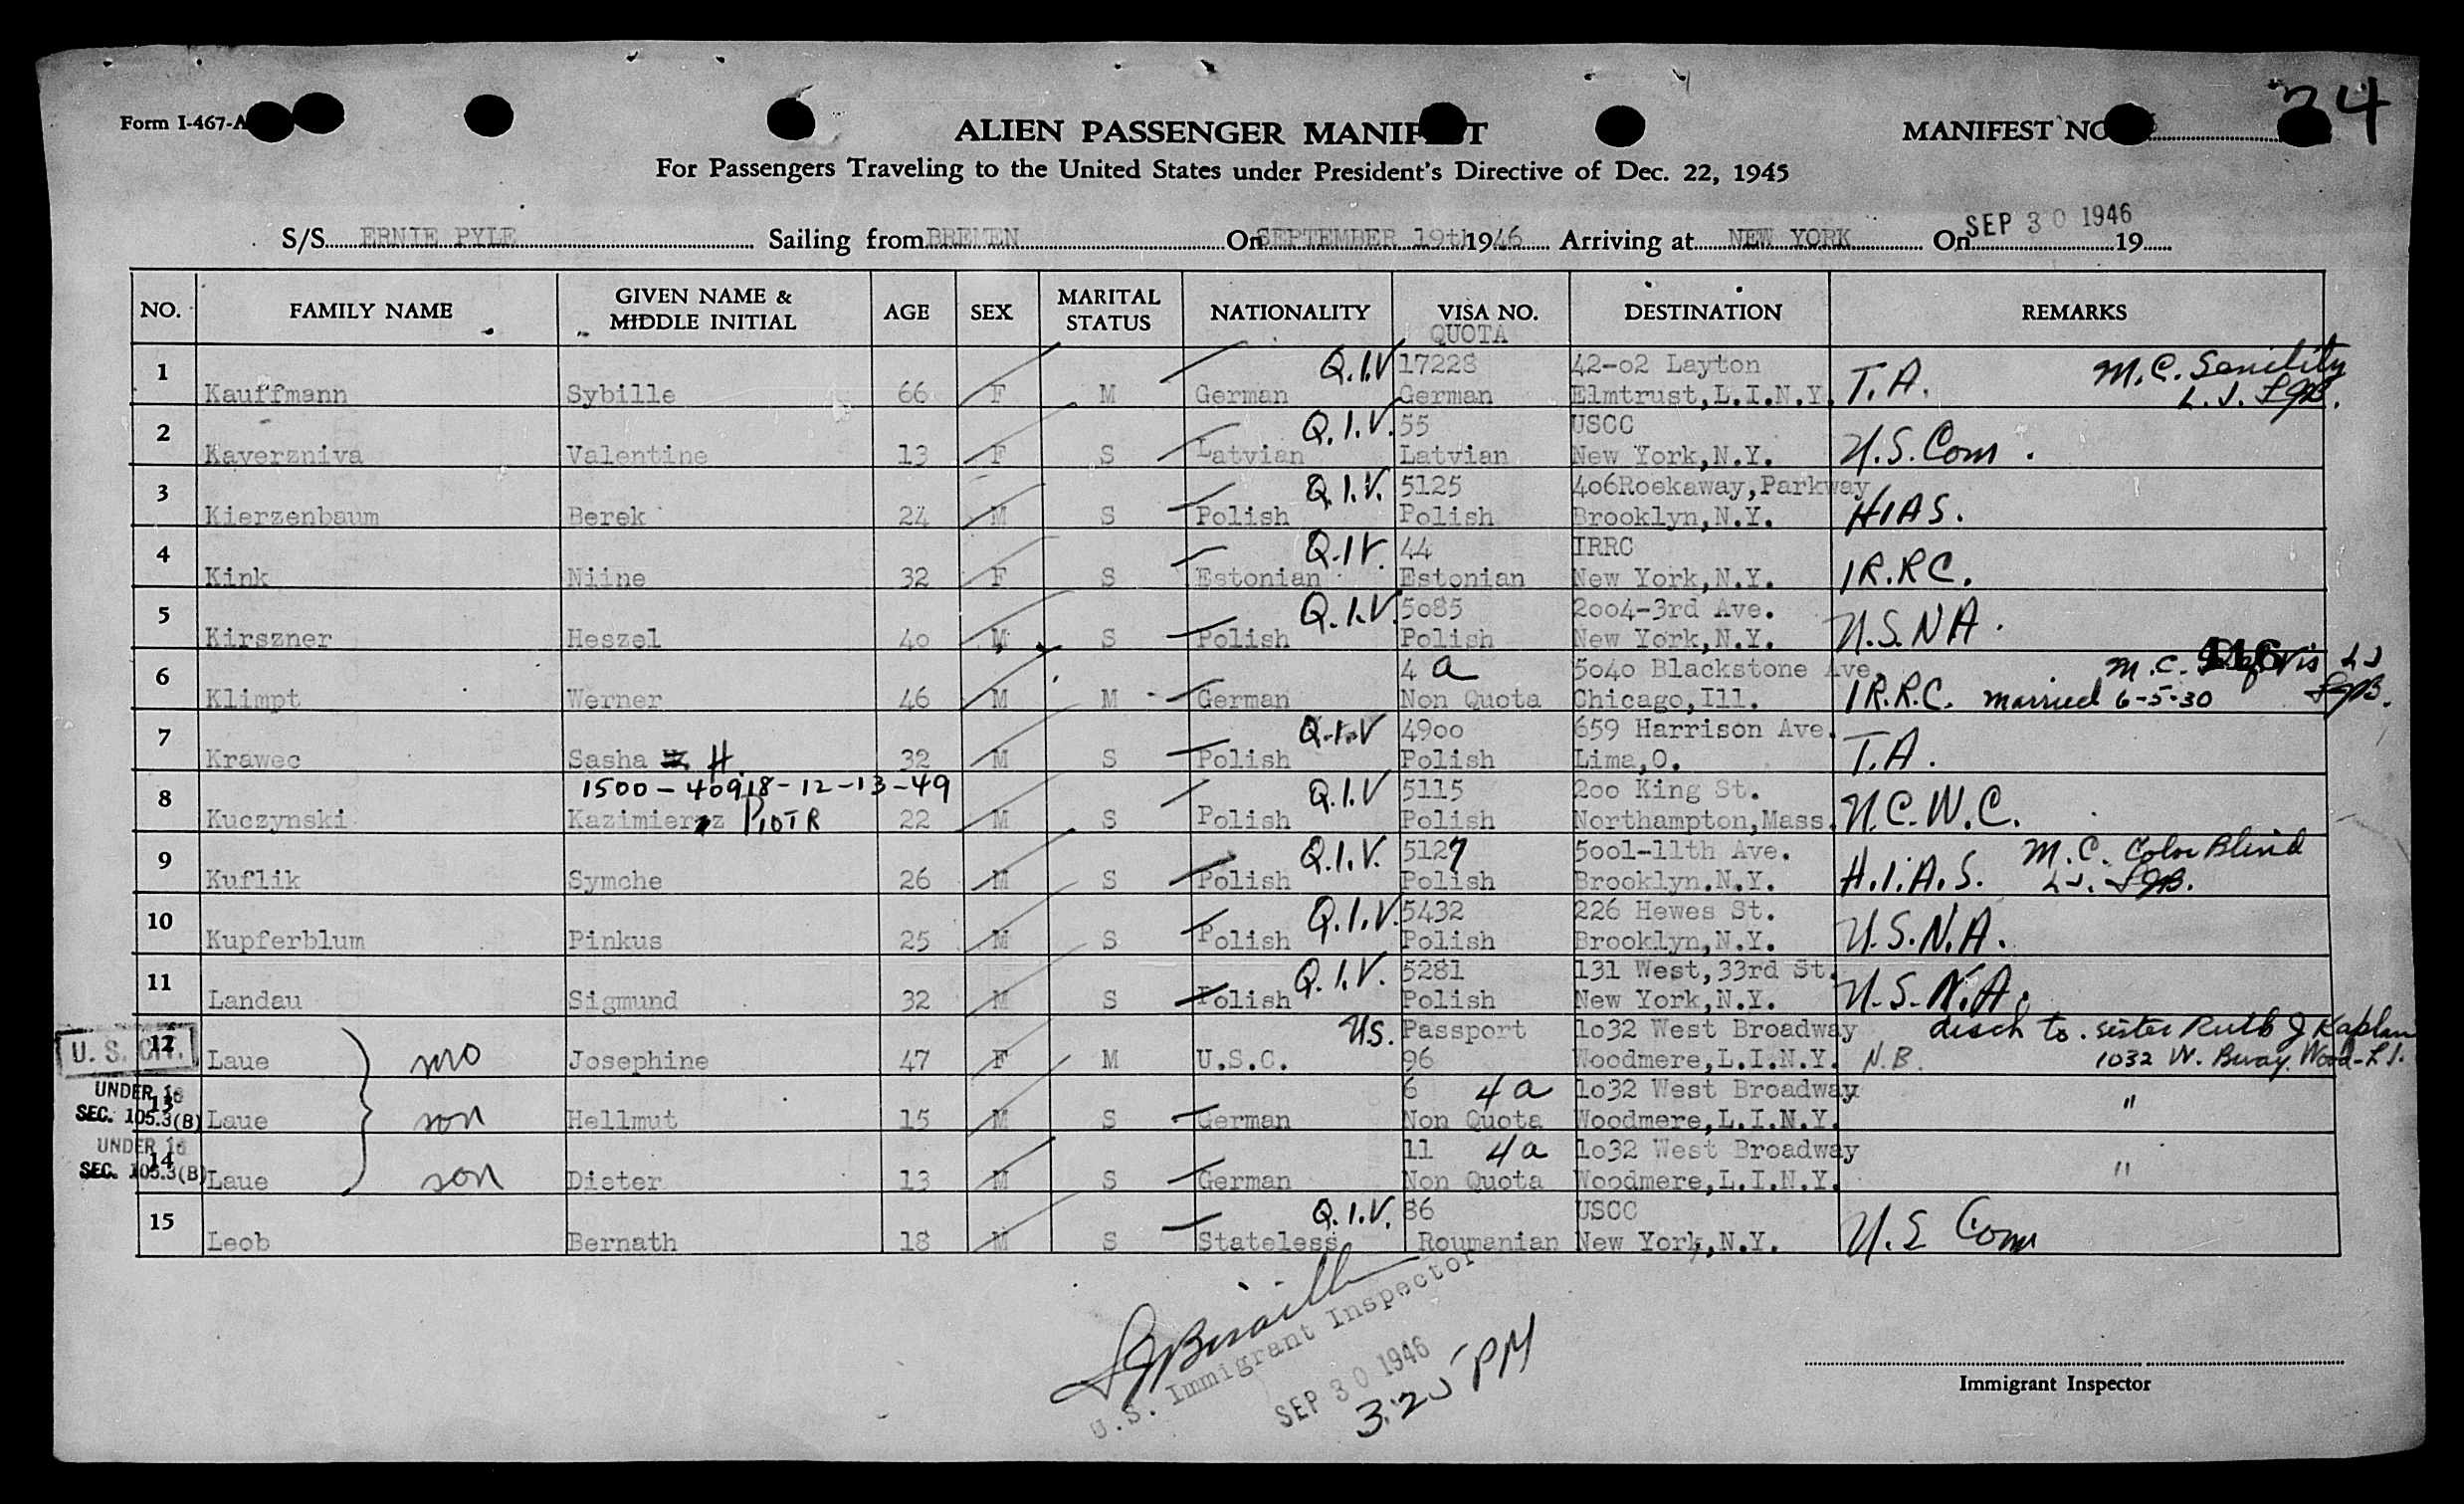 Form I-467-A
24
ALIEN PASSENGER MANIFEST
MANIFEST NO.
For Passengers Traveling to the United States under President's Directive of Dec. 22, 1945
S/S ERNIE PYLE Sailing from BREMEN On SEPTEMBER 19th 1946 Arriving at NEW YORK On SEP 30 1946 19
NO. FAMILY NAME GIVEN NAME & MIDDLE INITIAL AGE SEX MARITAL STATUS NATIONALITY VISA NO. QUOTA DESTINATION REMARKS
1 Q.I.V 17228 42-02 Layton M.C. Senility
Kauffmann Sybille 66 F M German German Elmtrust,L.I.N.Y. T.A. L.J.
2 Q.I.V. 55 USCC
Kaverzniva Valentine 13 F S Latvian Latvian New York,N.Y. U.S. Com.
3 Q.I.V. 5125 406Roekaway,Parkway
Kierzenbaum Berek 24 M S Polish Polish Brooklyn,N.Y. HIAS.
4 Q.I.V. 44 IRRC
Kink Niine 32 F S Estonian Estonian New York,N.Y. IR.RC.
5 Q.I.V. 5085 2004-3rd Ave.
Kirszner Heszel 40 M S Polish Polish New York,N.Y. U.S.NA.
6 4 a 5040 Blackstone Ave. M.C.
Klimpt Werner 46 M M German Non Quota Chicago,Ill. IR.R.C. married 6-5-30
7 Q.I.V 4900 659 Harrison Ave.
Krawec Sasha H. 32 M S Polish Polish Lima,O. T.A.
1500-40918-12-13-49
8 Q.I.V 5115 200 King St.
Kuczynski Kazimierz PIOTR 22 M S Polish Polish Northampton,Mass. N.C.W.C.
9 Q.I.V. 5127 5001-11th Ave. M.C. Color Blind
Kuflik Symche 26 M S Polish Polish Brooklyn.N.Y. H.I.A.S. L.J.
10 Q.I.V. 5432 226 Hewes St.
Kupferblum Pinkus 25 M S Polish Polish Brooklyn,N.Y. U.S.N.A.
11 Q.I.V. 5281 131 West,33rd St.
Landau Sigmund 32 M S Polish Polish New York,N.Y. U.S.N.A.
U. S. CIT. 12 US. Passport 1032 West Broadway disch to. sister Ruth J Kaplan
Laue mo Josephine 47 F M U.S.C. 96 Woodmere,L.I.N.Y. N.B. 1032 W. Bway. Wood-L.I.
UNDER 16 13 6 4a 1032 West Broadway
SEC. 105.3(B) Laue son Hellmut 15 M S German Non Quota Woodmere,L.I.N.Y. "
UNDER 16 14 11 4a 1032 West Broadway
SEC. 105.3(B) Laue son Dieter 13 M S German Non Quota Woodmere,L.I.N.Y. "
15 Q.I.V. 86 USCC
Leob Bernath 18 M S Stateless Roumanian New York,N.Y. U.S Com
U.S. Immigrant Inspector
SEP 30 1946
3:20 PM
Immigrant Inspector